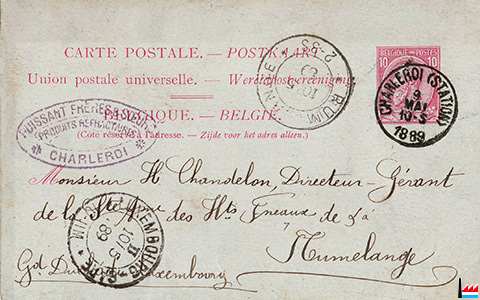 CARTE POSTALE. — POSTKAART.
Union postale universelle. — Wereldpostvereeniging.
BELGIQUE. — BELGIË.
(Côté réservé à l'adresse. — Zijde voor het adres alleen.)
BELGIQUE POSTES
10 10
CHARLEROI (STATION)
9
MAI
10-S
1889
RUMELANGE
10 5
89
2-3S
PUISSANT FRÈRES & SŒURS
PRODUITS RÉFRACTAIRES
CHARLEROI
Monsieur H Chandelon, Directeur-Gérant
de la Sté Ame des Hts Fneaux de &a
Rumelange
Gd Duché Luxembourg
LUXEMBOURG-GARE
10 5
89